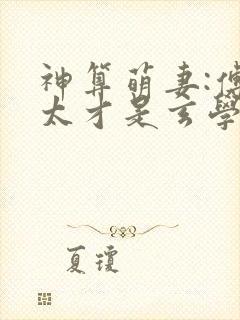 神算萌妻:傅
太才是玄學
夏瓊